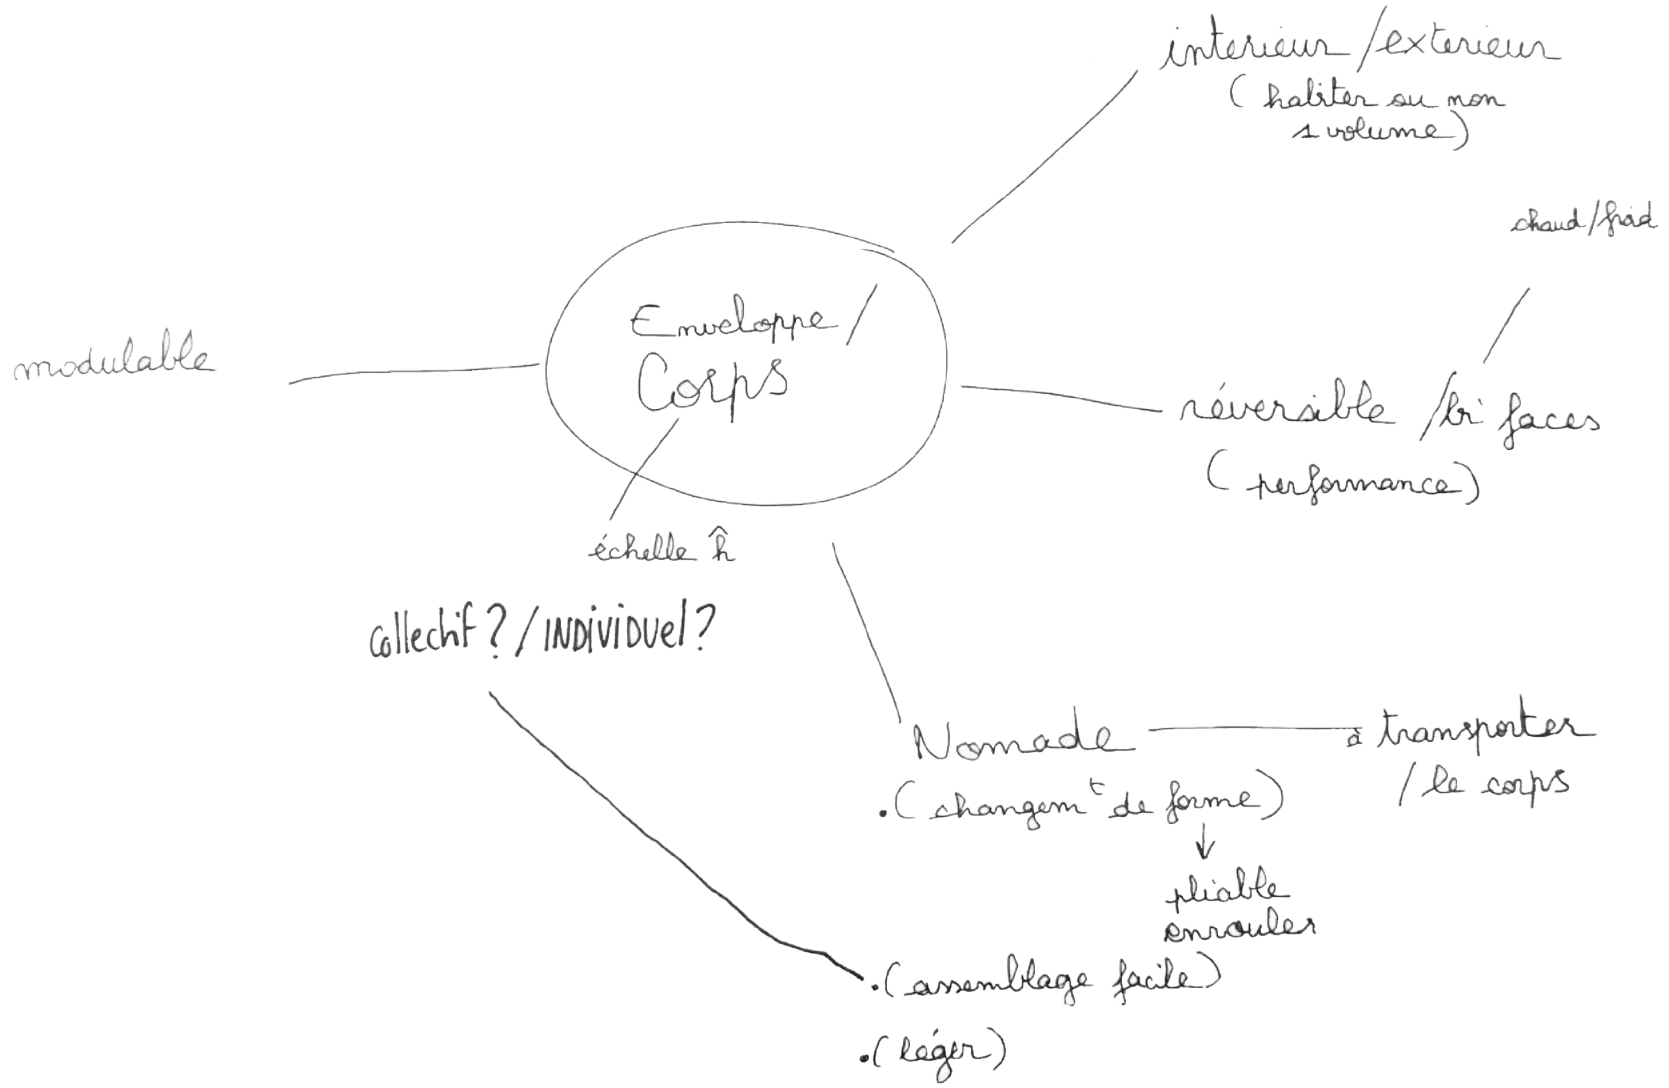 interieur / exterieur
( habiter ou non
1 volume )
chaud / froid
Enveloppe /
Corps
modulable
réversible / bi faces
( performance )
échelle ĥ
collectif ? / INDIVIDUEL ?
Nomade
à transporter
/ le corps
. ( changemt de forme )
↓
pliable
enrouler
. ( assemblage facile )
. ( léger )